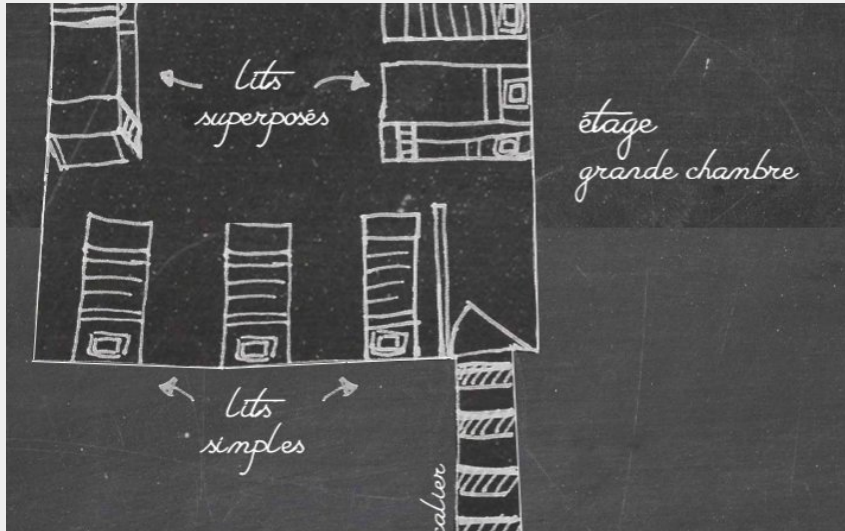 lits
superposés
étage
grande chambre
lits
simples